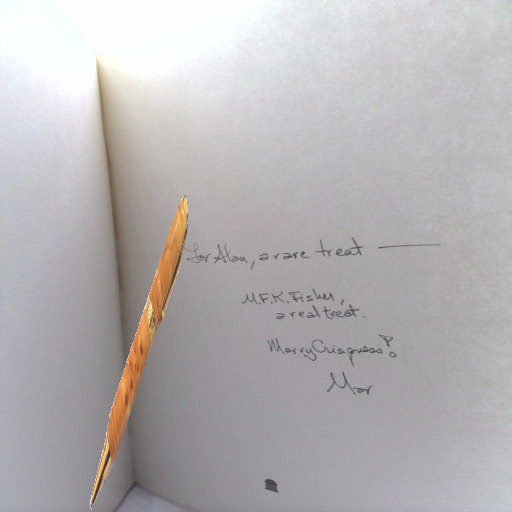 For Alan, a rare treat —
M.F.K. Fisher,
a real treat.
Merry Crispness!
Mar